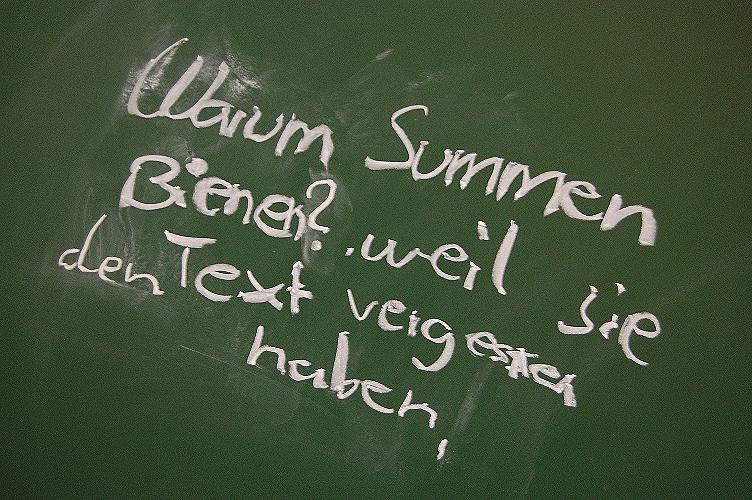 Warum Summen
Bienen? weil sie
den Text vergessen
haben,